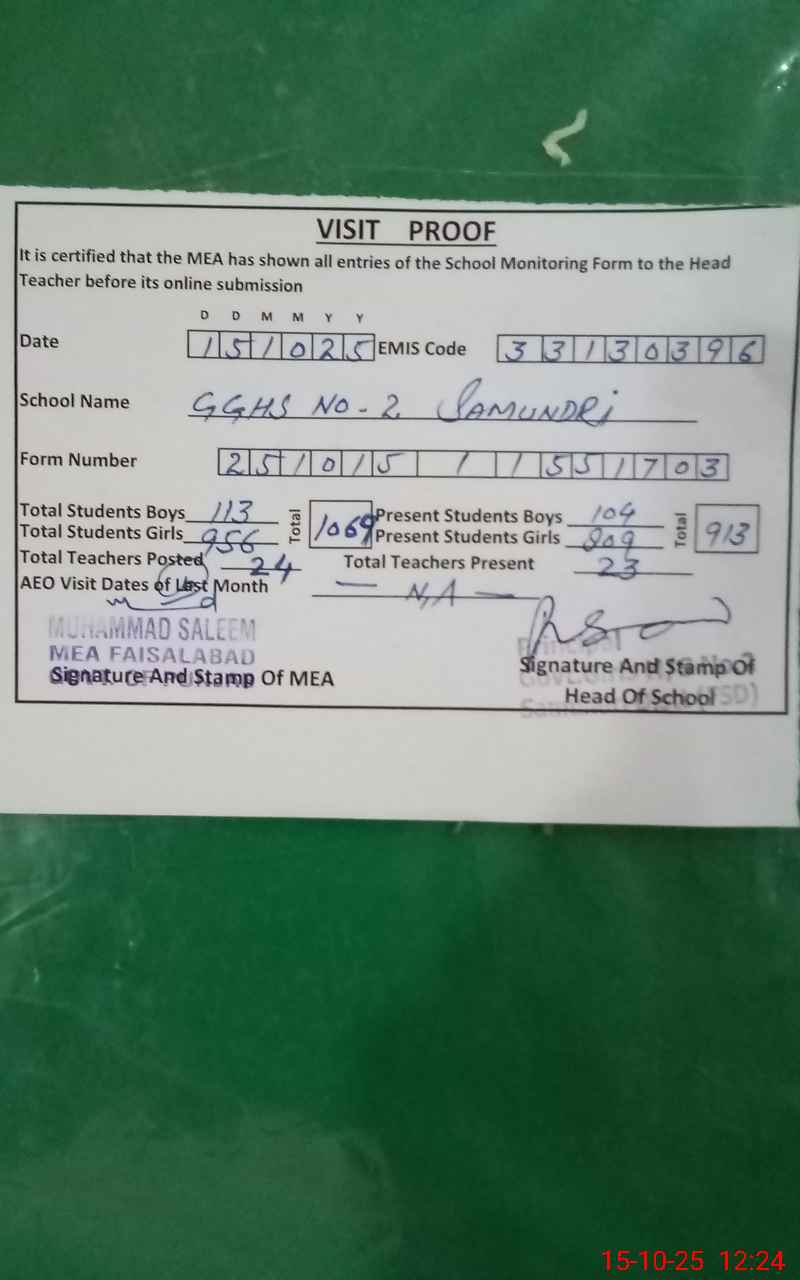 VISIT PROOF
It is certified that the MEA has shown all entries of the School Monitoring Form to the Head
Teacher before its online submission
D D M M Y Y
Date 151025 EMIS Code 33130396
School Name GGHS NO-2 SAMUNDRI
Form Number 251015 1 1551703
Total Students Boys 113 Total 1069 Present Students Boys 104 Total 913
Total Students Girls 956 Present Students Girls 809
Total Teachers Posted 24 Total Teachers Present 23
AEO Visit Dates of Last Month — N,A —
MUHAMMAD SALEEM
MEA FAISALABAD
Principal
Signature And Stamp Of MEA
Signature And Stamp Of
Head Of School
15-10-25 12:24